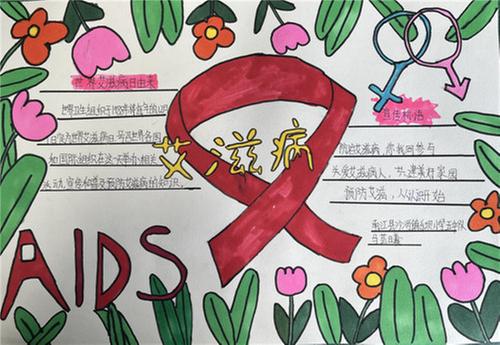 世界艾滋病日由来
世界卫生组织于1988年将每年的12月
1日定为世界艾滋病日,号召世界各国
和国际组织在这一天举办相关
活动,宣传和普及预防艾滋病的知识。
艾滋病
AIDS
宣传标语
预防艾滋病,你我同参与
关爱艾滋病人,共建美好家园
预防艾滋,从认识开始